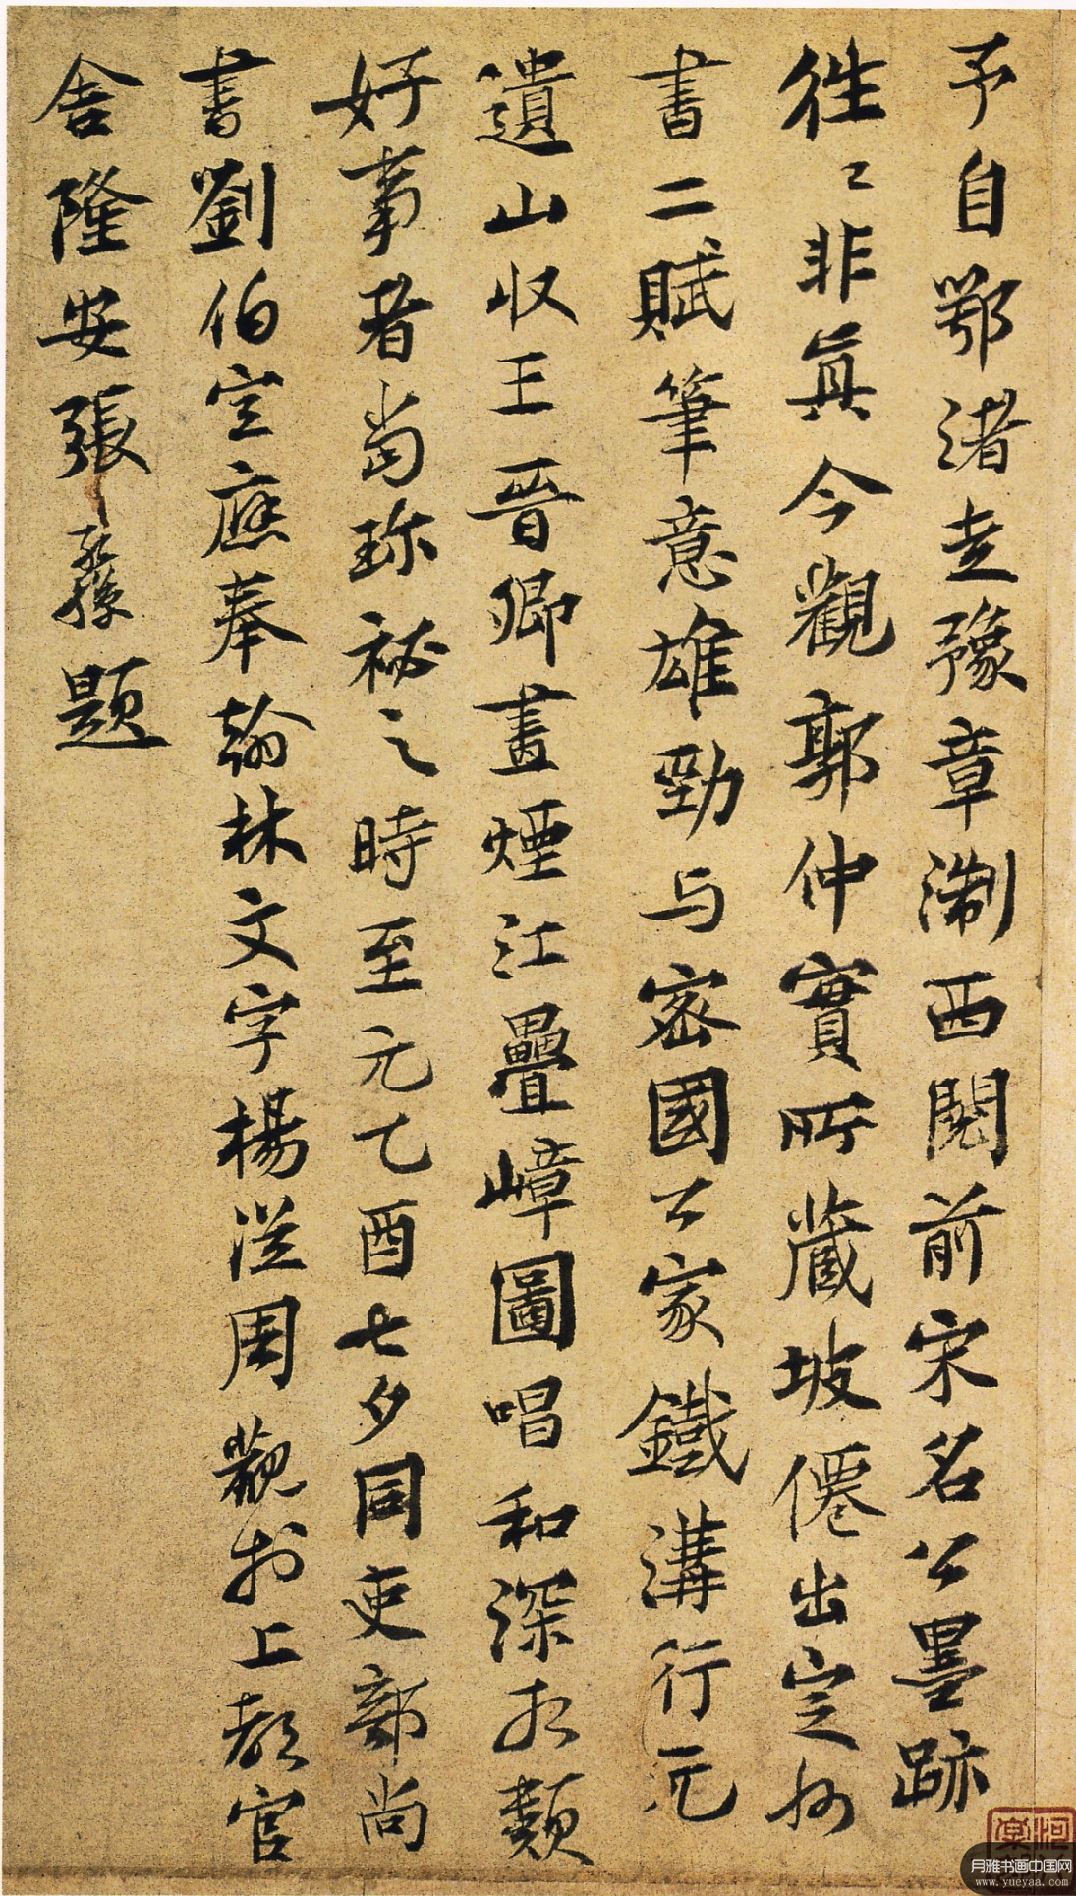 予自鄂渚走豫章淛西閱前宋名公墨跡
往〻非真今觀郭仲實所藏坡僊出定州
書二賦筆意雄勁与密國公家鐵溝行元
遺山収王晉卿畫煙江疊嶂圖唱和深相類
好事者當珎祕之時至元乙酉七夕同吏部尚
書劉伯宣應奉翰林文字楊從周觀於上都官
舍隆安張孔孫題
月雅书画中国网
www.yueyaa.com